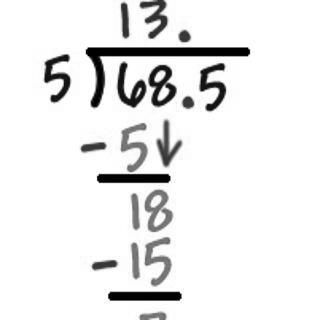 13.
5)68.5
-5
18
-15